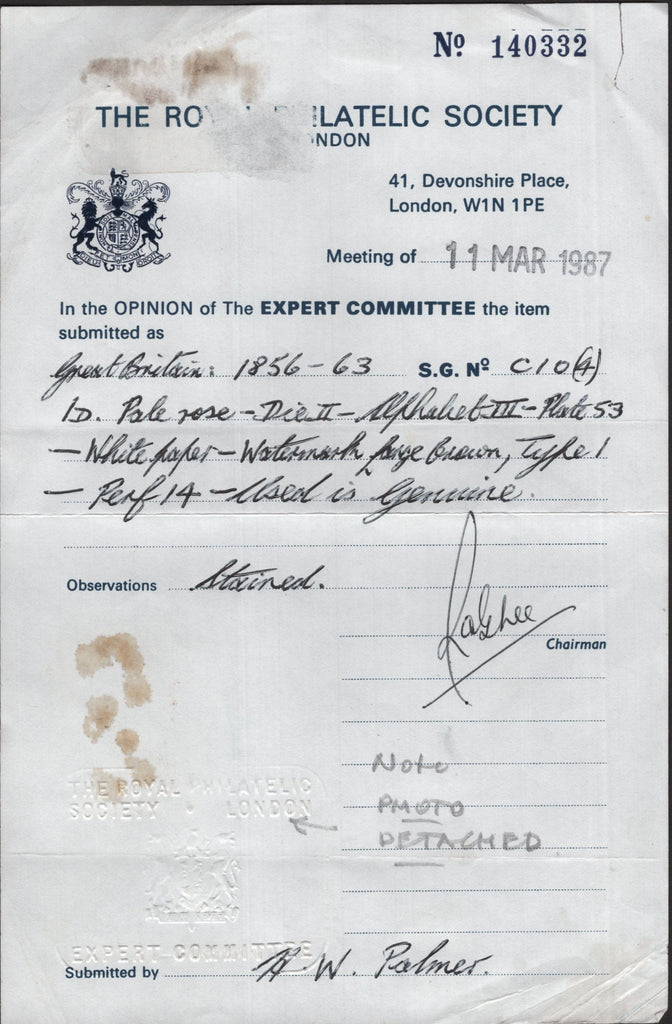 Nº 140332
THE RO LATELIC SOCIETY
NDON
41, Devonshire Place,
London, W1N 1PE
Meeting of 11 MAR 1987
In the OPINION of The EXPERT COMMITTEE the item
submitted as
Great Britain: 1856-63 S.G. Nº C10(4)
1D. Pale rose - Die II - Alphabet III - Plate 53
- White paper - Watermark Large Crown, Type 1
- Perf 14 - Used is Genuine.
Observations Stained.
Chairman
Note
PHOTO
DETACHED
THE ROYAL PHILATELIC
SOCIETY · LONDON
EXPERT COMMITTEE
Submitted by H. W. Palmer.